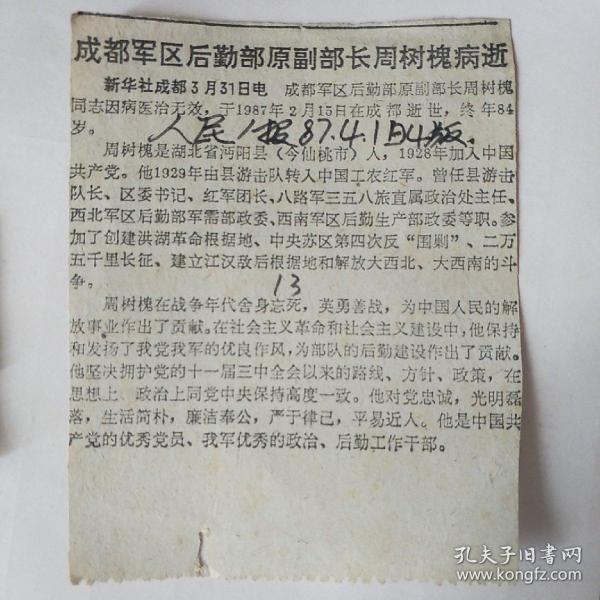 成都军区后勤部原副部长周树槐病逝
新华社成都3月31日电 成都军区后勤部原副部长周树槐
同志因病医治无效，于1987年2月15日在成都逝世，终年84
岁。
人民日报87.4.1日4版.
周树槐是湖北省沔阳县（今仙桃市）人，1928年加入中国
共产党。他1929年由县游击队转入中国工农红军。曾任县游击
队长、区委书记、红军团长、八路军三五八旅直属政治处主任、
西北军区后勤部军需部政委、西南军区后勤生产部政委等职。参
加了创建洪湖革命根据地、中央苏区第四次反“围剿”、二万
五千里长征、建立江汉敌后根据地和解放大西北、大西南的斗
争。
13
周树槐在战争年代舍身忘死，英勇善战，为中国人民的解
放事业作出了贡献。在社会主义革命和社会主义建设中，他保持
和发扬了我党我军的优良作风，为部队的后勤建设作出了贡献。
他坚决拥护党的十一届三中全会以来的路线、方针、政策，在
思想上、政治上同党中央保持高度一致。他对党忠诚，光明磊
落，生活简朴，廉洁奉公，严于律己，平易近人。他是中国共
产党的优秀党员、我军优秀的政治、后勤工作干部。
孔夫子旧书网
www.kongfz.com